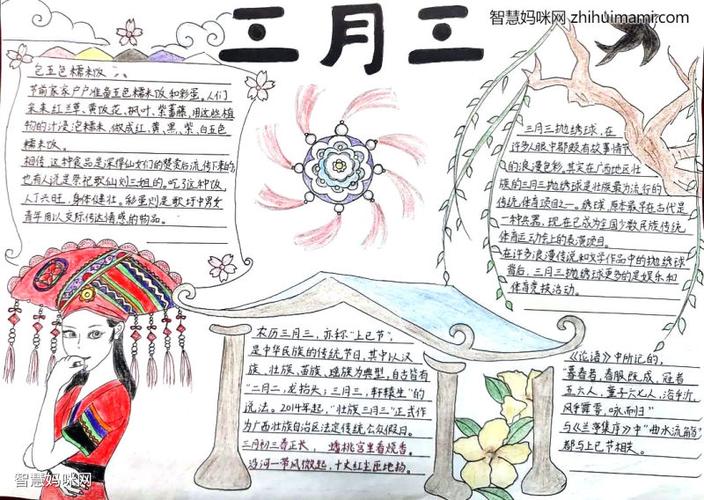 三月三
智慧妈咪网 zhihuimami.com
包五色糯米饭
节前家家户户准备五色糯米饭和彩蛋。人们
采来红兰草、黄饭花、枫叶、紫蕃藤,用这些植
物的汁浸泡糯米,做成红、黄、黑、紫、白五色
糯米饭。
相传,这种食品是深得仙女们的赞赏后流传下来的
也有人说是祭祀歌仙刘三姐的。吃了这种饭,
人丁兴旺,身体健壮。彩蛋则是歌圩中男女
青年用以交际传达情感的物品。
三月三抛绣球,在
许多人眼中都颇有故事情节
的浪漫色彩,其实在广西地区壮
族的三月三抛绣球是壮族最为流行的
传统体育项目之一。绣球,原本最早在古代是
一种兵器,现在已成为全国少数民族传统
体育运动会上的表演项目。
在许多浪漫传说和文学作品中的抛绣球
背后,三月三抛绣球更多的是娱乐和
体育竞技活动。
农历三月三,亦称“上巳节”,
是中华民族的传统节日,其中以汉
族、壮族、苗族、瑶族为典型,自古皆有
“二月二,龙抬头;三月三,轩辕生”的
说法。2014年起,“壮族三月三”正式作
为广西壮族自治区法定传统公众假日。
三月初三春正长,蟠桃宫里看烧香。
沿河一带风微起,十丈红尘匝地扬。
《论语》中所记的,
“暮春者,春服既成,冠者
五六人,童子六七人,浴乎沂,
风乎舞雩,咏而归”
与《兰亭集序》中“曲水流觞”
都与上巳节相关。
智慧妈咪网